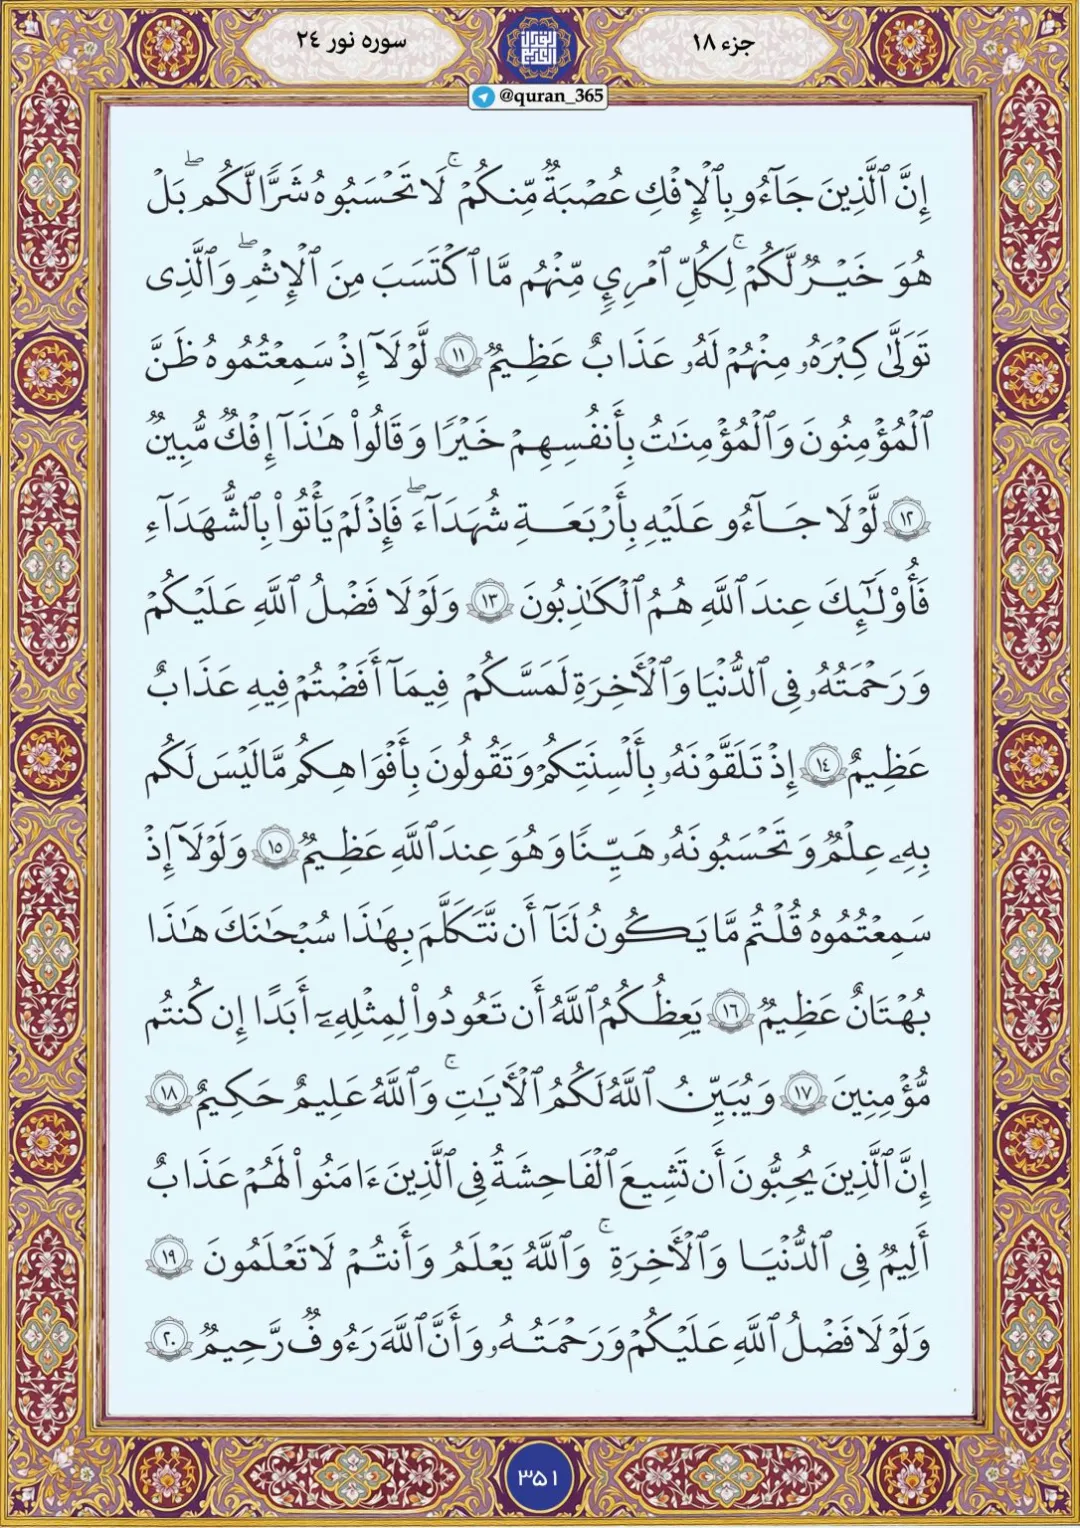 جزء ۱۸
سوره نور ۲٤
القرآن الكريم
@quran_365
إِنَّ ٱلَّذِينَ جَآءُو بِٱلْإِفْكِ عُصْبَةٌ مِّنكُمْ ۚ لَا تَحْسَبُوهُ شَرًّا لَّكُم ۖ بَلْ
هُوَ خَيْرٌ لَّكُمْ ۚ لِكُلِّ ٱمْرِئٍ مِّنْهُم مَّا ٱكْتَسَبَ مِنَ ٱلْإِثْمِ ۖ وَٱلَّذِى
تَوَلَّىٰ كِبْرَهُۥ مِنْهُمْ لَهُۥ عَذَابٌ عَظِيمٌ ١١ لَّوْلَآ إِذْ سَمِعْتُمُوهُ ظَنَّ
ٱلْمُؤْمِنُونَ وَٱلْمُؤْمِنَـٰتُ بِأَنفُسِهِمْ خَيْرًا وَقَالُوا۟ هَـٰذَآ إِفْكٌ مُّبِينٌ
١٢ لَّوْلَا جَآءُو عَلَيْهِ بِأَرْبَعَةِ شُهَدَآءَ ۖ فَإِذْ لَمْ يَأْتُوا۟ بِٱلشُّهَدَآءِ
فَأُو۟لَـٰٓئِكَ عِندَ ٱللَّهِ هُمُ ٱلْكَـٰذِبُونَ ١٣ وَلَوْلَا فَضْلُ ٱللَّهِ عَلَيْكُمْ
وَرَحْمَتُهُۥ فِى ٱلدُّنْيَا وَٱلْأَخِرَةِ لَمَسَّكُمْ فِيمَآ أَفَضْتُمْ فِيهِ عَذَابٌ
عَظِيمٌ ١٤ إِذْ تَلَقَّوْنَهُۥ بِأَلْسِنَتِكُمْ وَتَقُولُونَ بِأَفْوَاهِكُم مَّا لَيْسَ لَكُم
بِهِۦ عِلْمٌ وَتَحْسَبُونَهُۥ هَيِّنًا وَهُوَ عِندَ ٱللَّهِ عَظِيمٌ ١٥ وَلَوْلَآ إِذْ
سَمِعْتُمُوهُ قُلْتُم مَّا يَكُونُ لَنَآ أَن نَّتَكَلَّمَ بِهَـٰذَا سُبْحَـٰنَكَ هَـٰذَا
بُهْتَانٌ عَظِيمٌ ١٦ يَعِظُكُمُ ٱللَّهُ أَن تَعُودُوا۟ لِمِثْلِهِۦٓ أَبَدًا إِن كُنتُم
مُّؤْمِنِينَ ١٧ وَيُبَيِّنُ ٱللَّهُ لَكُمُ ٱلْأَيَـٰتِ ۚ وَٱللَّهُ عَلِيمٌ حَكِيمٌ ١٨
إِنَّ ٱلَّذِينَ يُحِبُّونَ أَن تَشِيعَ ٱلْفَـٰحِشَةُ فِى ٱلَّذِينَ ءَامَنُوا۟ لَهُمْ عَذَابٌ
أَلِيمٌ فِى ٱلدُّنْيَا وَٱلْأَخِرَةِ ۚ وَٱللَّهُ يَعْلَمُ وَأَنتُمْ لَا تَعْلَمُونَ ١٩
وَلَوْلَا فَضْلُ ٱللَّهِ عَلَيْكُمْ وَرَحْمَتُهُۥ وَأَنَّ ٱللَّهَ رَءُوفٌ رَّحِيمٌ ٢٠
۳۵۱